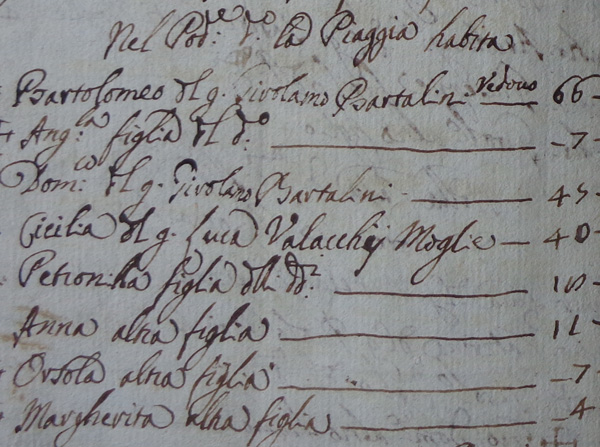 Nel Pod:re d:o la Piaggia habita
Bartolomeo del q. Girolamo Bartalini Vedovo 66
+ Ang:a figlia del d:o 7
Dom:co del q. Girolamo Bartalini 45
Cicilia del q. Luca Valacchij Moglie 40
Petronilla figlia delli dd:i
Anna altra figlia 11
Orsola altra figlia 7
Margherita altra figlia 4